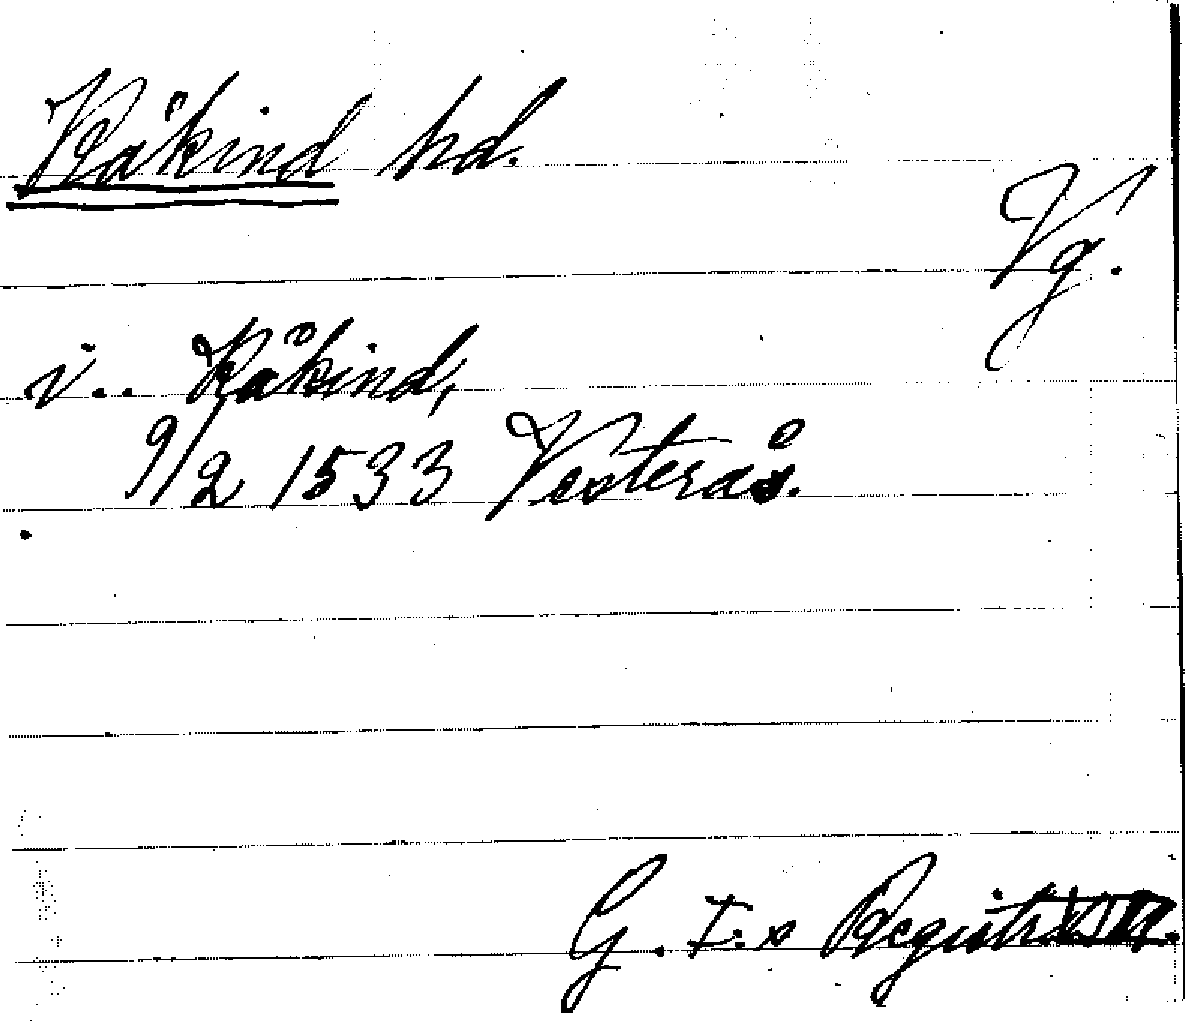 Kåkind hd.
Vg.
i.. Kåkind,
9/2 1533 Vesterås.
G. I:s Registr.